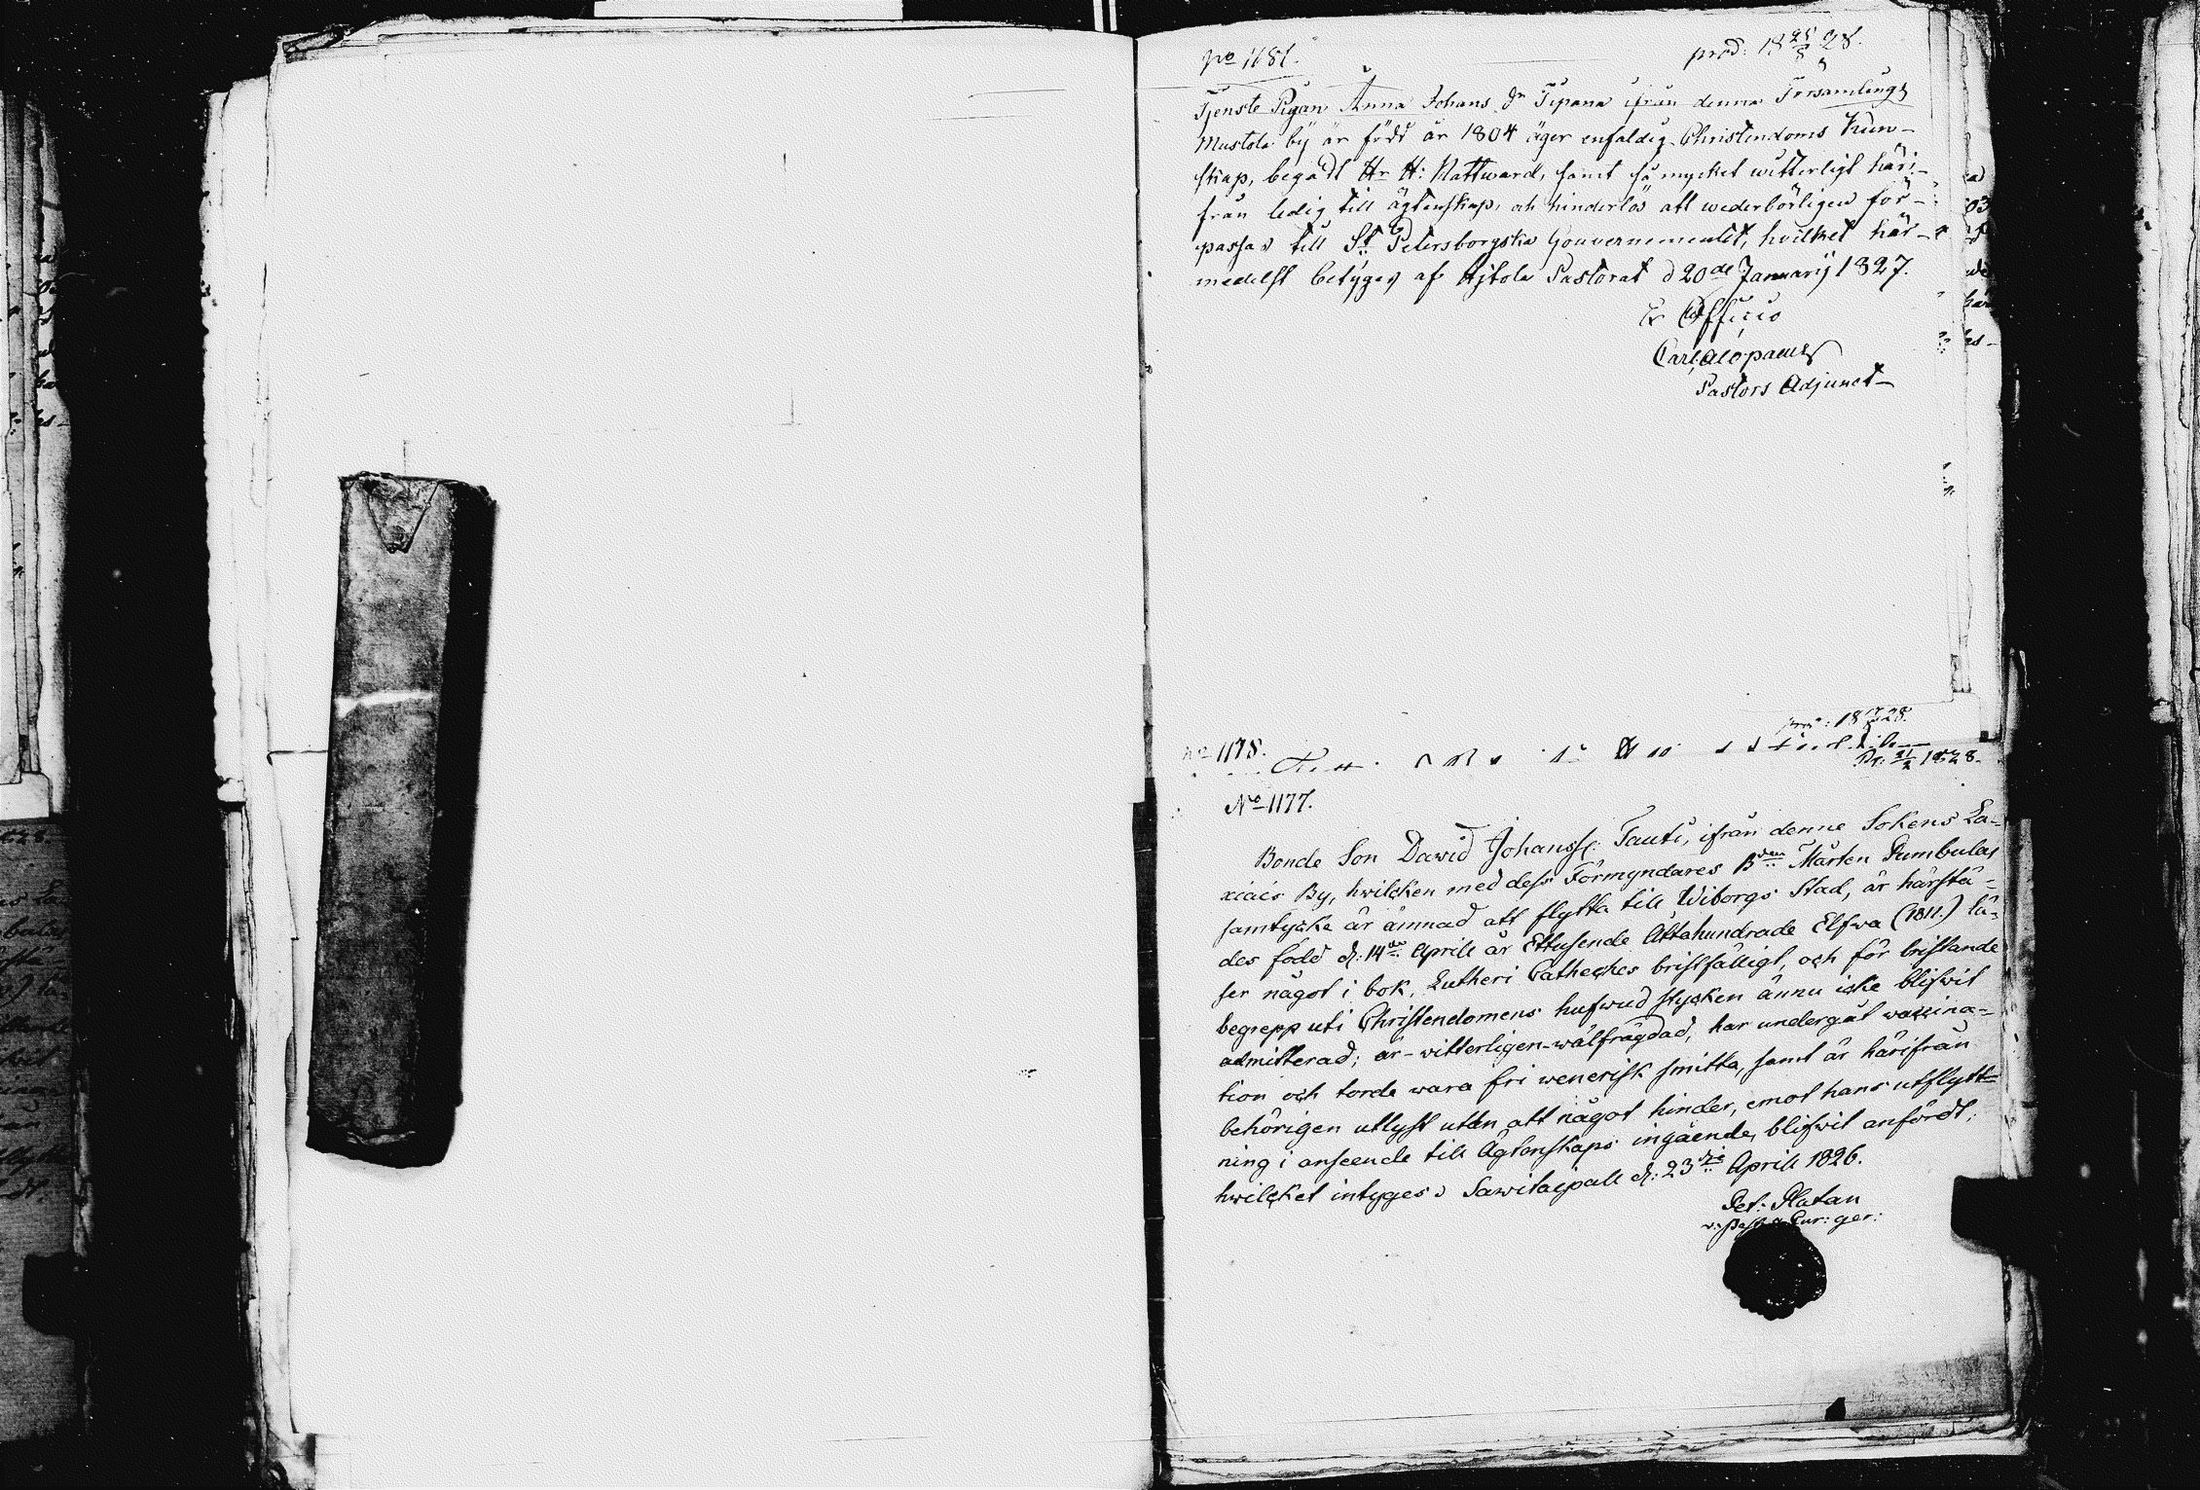 No 1181.
prod: 18 25/8 28.
Tjenste Pigan Anna Johans dr Tipana ifrån denna Församlings
Mustola by är född år 1804 äger enfaldig Christendoms Kun-
skap, begådt Hr H: Nattward, samt så mycket witterligt häri-
från ledig till ägtenskap, och hinderlös att wederbörligen för-
passas till St Petersborgska Gouvernementet, hvilket här-
medelst betygas af Hjtola Pastorat d 20de Januarij 1827.
Ex Officio
Carl Alopaeus
Pastors Adjunct
No 1178.
18 28.
Pr: 21/2 1828.
No 1177.
Bonde Son Dawid Johanss: Tauti, ifrån denne Sokens La-
xiais By, hwilcken med dess Förmyndares Bden Mårten Pumbulas
samtycke är ämnad att flytta till Wiborgs Stad, är härstä-
des född d: 14de Aprill år Ettusende Åttahundrade Elfwa (1811.) lä-
ser något i bok, Lutheri Catheches bristfälligt, och för bristande
begrepp uti Christendomens hufwud stycken ännu icke blifwit
admitterad; är-witterligen-wälfrägdad, har undergåt waccina-
tion och torde wara fri wenerisk smitta, samt är härifrån
behörigen utlyst utan att något hinder, emot hans utflytt-
ning i anseende till Ägtenskaps ingående, blifwit anfördt;
hwilcket intyges Sawitaipall d: 23die Aprill 1826.
Pet: Platan
v: Past: Cur: ger: